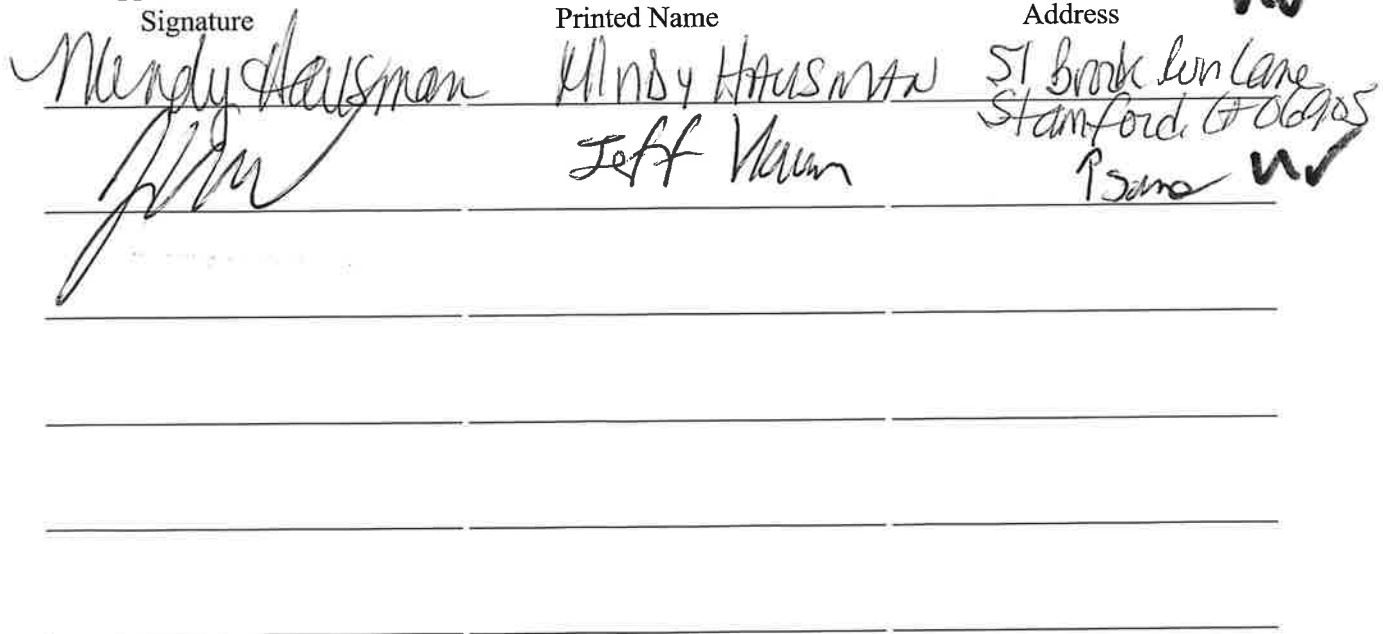 Signature Printed Name Address
Mindy Hausman MINDY HAUSMAN 51 Brook Run Lane
Stamford, CT 06905
Jeff Same